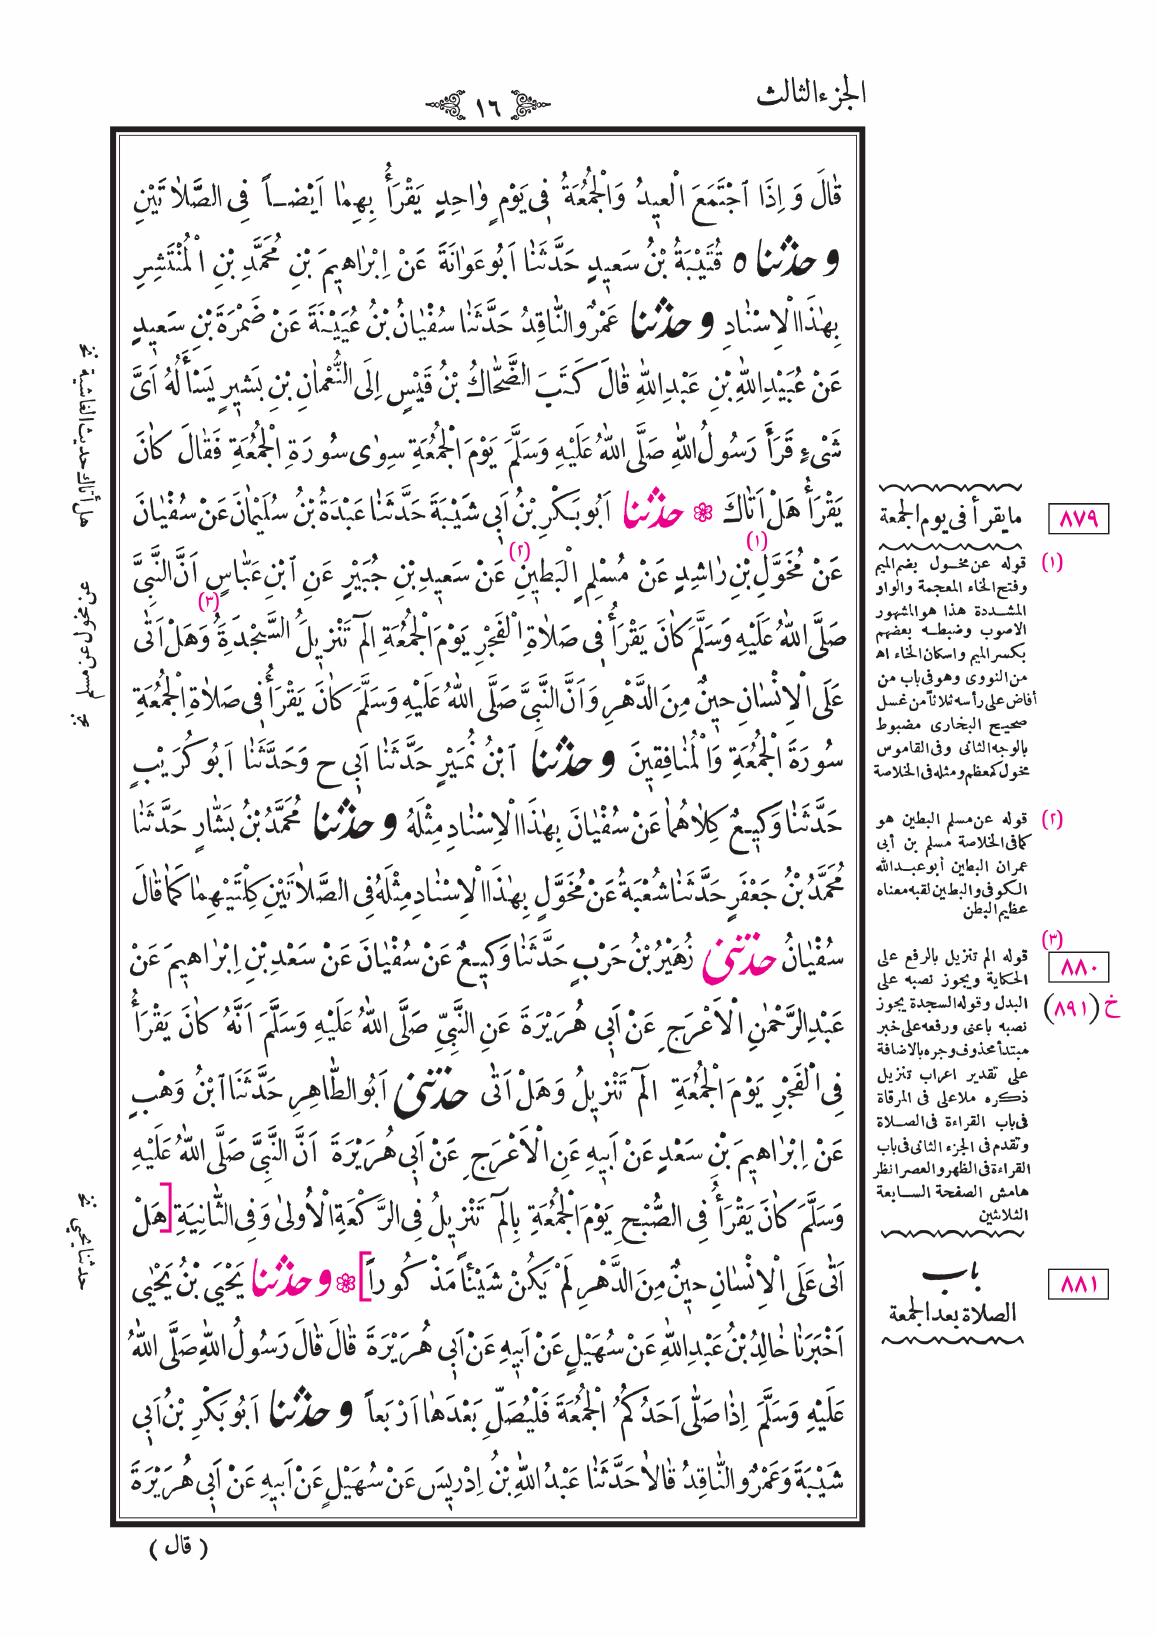 الجزء الثالث
١٦
قَالَ وَإِذَا ٱجْتَمَعَ الْعِيدُ وَالْجُمُعَةُ فِى يَوْمٍ وَاحِدٍ يَقْرَأُ بِهِمَا اَيْضاً فِى الصَّلَاتَيْنِ
وحدثنا ٥ قُتَيْبَةُ بْنُ سَعِيدٍ حَدَّثَنَا اَبُو عَوَانَةَ عَنْ اِبْرَاهِيمَ بْنِ مُحَمَّدِ بْنِ الْمُنْتَشِرِ
بِهٰذَا الْاِسْنَادِ وحدثنا عَمْرٌو النَّاقِدُ حَدَّثَنَا سُفْيَانُ بْنُ عُيَيْنَةَ عَنْ ضَمْرَةَ بْنِ سَعِيدٍ
عَنْ عُبَيْدِ اللّٰهِ بْنِ عَبْدِ اللّٰهِ قَالَ كَتَبَ الضَّحَّاكُ بْنُ قَيْسٍ اِلَى النُّعْمَانِ بْنِ بَشِيرٍ يَسْأَلُهُ اَىَّ
شَىْءٍ قَرَأَ رَسُولُ اللّٰهِ صَلَّى اللّٰهُ عَلَيْهِ وَسَلَّمَ يَوْمَ الْجُمُعَةِ سِوٰى سُورَةِ الْجُمُعَةِ فَقَالَ كَانَ
يَقْرَأُ هَلْ اَتَاكَ ❁ حدثنا اَبُو بَكْرِ بْنُ اَبِى شَيْبَةَ حَدَّثَنَا عَبْدَةُ بْنُ سُلَيْمَانَ عَنْ سُفْيَانَ
عَنْ مُخَوَّلِ (١) بْنِ رَاشِدٍ عَنْ مُسْلِمٍ الْبَطِينِ (٢) عَنْ سَعِيدِ بْنِ جُبَيْرٍ عَنِ ٱبْنِ عَبَّاسٍ اَنَّ النَّبِىَّ
صَلَّى اللّٰهُ عَلَيْهِ وَسَلَّمَ كَانَ يَقْرَأُ فِى صَلَاةِ الْفَجْرِ يَوْمَ الْجُمُعَةِ الٓمٓ تَنْزِيلُ السَّجْدَةِ (٣) وَهَلْ اَتٰى
عَلَى الْاِنْسَانِ حِينٌ مِنَ الدَّهْرِ وَاَنَّ النَّبِىَّ صَلَّى اللّٰهُ عَلَيْهِ وَسَلَّمَ كَانَ يَقْرَأُ فِى صَلَاةِ الْجُمُعَةِ
سُورَةَ الْجُمُعَةِ وَالْمُنَافِقِينَ وحدثنا ٱبْنُ نُمَيْرٍ حَدَّثَنَا اَبِى ح وَحَدَّثَنَا اَبُو كُرَيْبٍ
حَدَّثَنَا وَكِيعٌ كِلَاهُمَا عَنْ سُفْيَانَ بِهٰذَا الْاِسْنَادِ مِثْلَهُ وحدثنا مُحَمَّدُ بْنُ بَشَّارٍ حَدَّثَنَا
مُحَمَّدُ بْنُ جَعْفَرٍ حَدَّثَنَا شُعْبَةُ عَنْ مُخَوَّلٍ بِهٰذَا الْاِسْنَادِ مِثْلَهُ فِى الصَّلَاتَيْنِ كِلْتَيْهِمَا كَمَا قَالَ
سُفْيَانُ حدثنى زُهَيْرُ بْنُ حَرْبٍ حَدَّثَنَا وَكِيعٌ عَنْ سُفْيَانَ عَنْ سَعْدِ بْنِ اِبْرَاهِيمَ عَنْ
عَبْدِ الرَّحْمٰنِ الْاَعْرَجِ عَنْ اَبِى هُرَيْرَةَ عَنِ النَّبِىِّ صَلَّى اللّٰهُ عَلَيْهِ وَسَلَّمَ اَنَّهُ كَانَ يَقْرَأُ
فِى الْفَجْرِ يَوْمَ الْجُمُعَةِ الٓمٓ تَنْزِيلُ وَهَلْ اَتٰى حدثنى اَبُو الطَّاهِرِ حَدَّثَنَا ٱبْنُ وَهْبٍ
عَنْ اِبْرَاهِيمَ بْنِ سَعْدٍ عَنْ اَبِيهِ عَنِ الْاَعْرَجِ عَنْ اَبِى هُرَيْرَةَ اَنَّ النَّبِىَّ صَلَّى اللّٰهُ عَلَيْهِ
وَسَلَّمَ كَانَ يَقْرَأُ فِى الصُّبْحِ يَوْمَ الْجُمُعَةِ بِالٓمٓ تَنْزِيلُ فِى الرَّكْعَةِ الْاُولٰى وَفِى الثَّانِيَةِ [هَلْ
اَتٰى عَلَى الْاِنْسَانِ حِينٌ مِنَ الدَّهْرِ لَمْ يَكُنْ شَيْئاً مَذْكُوراً] ❁ وحدثنا يَحْيَى بْنُ يَحْيٰى
اَخْبَرَنَا خَالِدُ بْنُ عَبْدِ اللّٰهِ عَنْ سُهَيْلٍ عَنْ اَبِيهِ عَنْ اَبِى هُرَيْرَةَ قَالَ قَالَ رَسُولُ اللّٰهِ صَلَّى اللّٰهُ
عَلَيْهِ وَسَلَّمَ اِذَا صَلَّى اَحَدُكُمُ الْجُمُعَةَ فَلْيُصَلِّ بَعْدَهَا اَرْبَعاً وحدثنا اَبُو بَكْرِ بْنُ اَبِى
شَيْبَةَ وَعَمْرٌو النَّاقِدُ قَالَا حَدَّثَنَا عَبْدُ اللّٰهِ بْنُ اِدْرِيسَ عَنْ سُهَيْلٍ عَنْ اَبِيهِ عَنْ اَبِى هُرَيْرَةَ
( قال )
٨٧٩
ما يقرأ فى يوم الجمعة
(١) قوله عن مخول بضم الميم
وفتح الخاء المعجمة والواو
المشددة هذا هو المشهور
الاصوب وضبطه بعضهم
بكسر الميم واسكان الخاء اه
من النووى وهو فى باب من
أفاض على رأسه ثلاثاً من غسل
صحيح البخارى مضبوط
بالوجه الثانى وفى القاموس
مخول كمعظم ومثله فى الخلاصة
(٢) قوله عن مسلم البطين هو
كما فى الخلاصة مسلم بن أبى
عمران البطين أبو عبد الله
الكوفى والبطين لقبه معناه
عظيم البطن
(٣)
٨٨٠
خ (٨٩١)
قوله الم تنزيل بالرفع على
الحكاية ويجوز نصبه على
البدل وقوله السجدة يجوز
نصبه باعنى ورفعه على خبر
مبتدأ محذوف وجره بالاضافة
على تقدير اعراب تنزيل
ذكره ملا على فى المرقاة
فى باب القراءة فى الصلاة
وتقدم فى الجزء الثانى فى باب
القراءة فى الظهر والعصر انظر
هامش الصفحة السابعة
الثلاثين
باب
الصلاة بعد الجمعة
٨٨١
هل أتاك حديث الغاشية نخ
حدثنا يحيى نخ